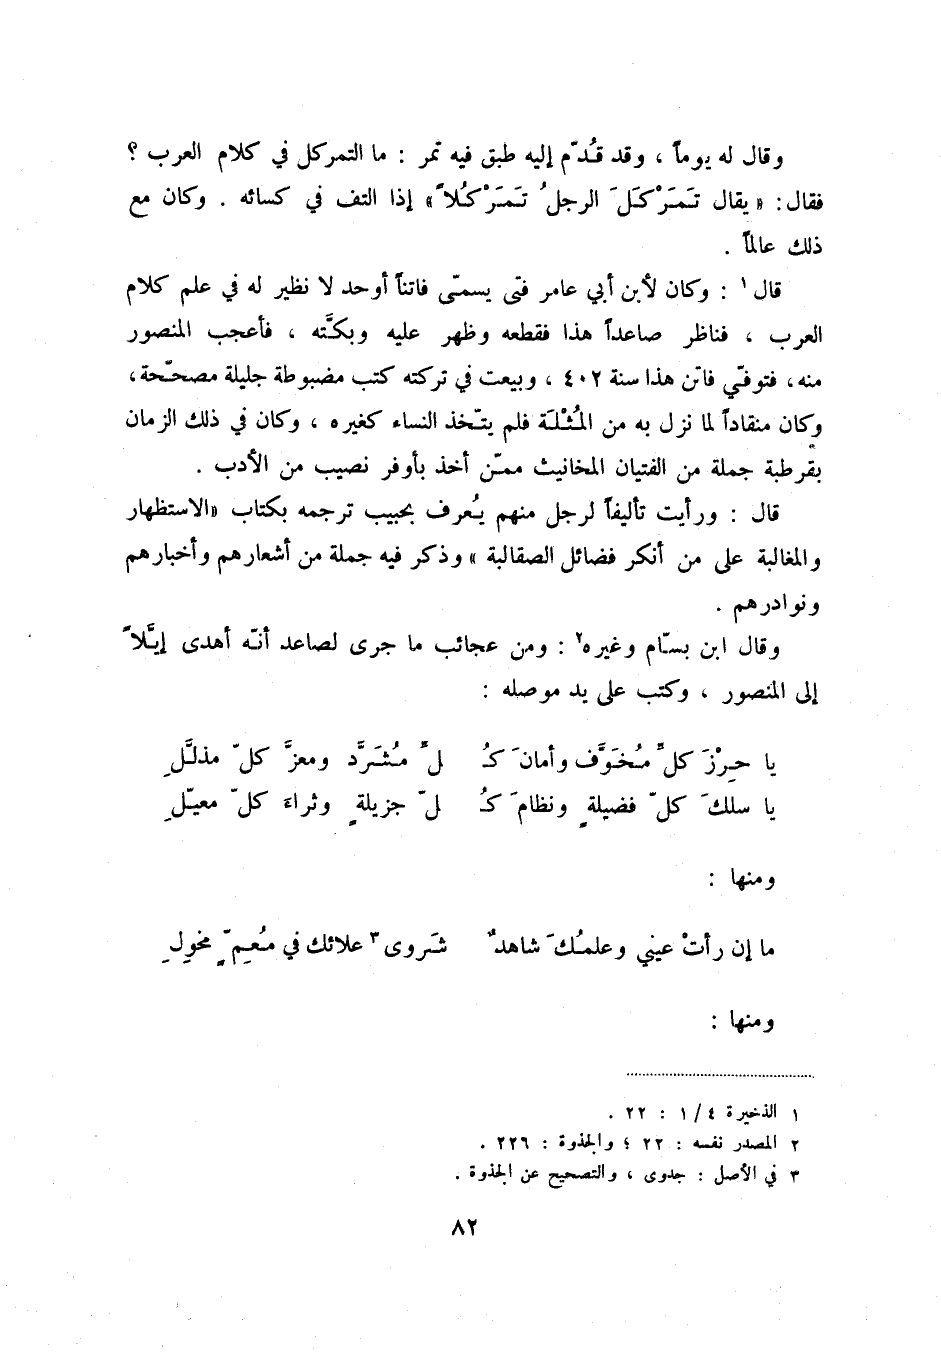 وقال له يوماً ، وقد قُدّم إليه طبق فيه تمر : ما التمركل في كلام العرب ؟
فقال: « يقال تَمَرْكَلَ الرجلُ تَمَرْكُلاً » إذا التف في كسائه . وكان مع
ذلك عالماً .
قال ١ : وكان لأبن أبي عامر فتى يسمّى فاتناً أوحد لا نظير له في علم كلام
العرب ، فناظر صاعداً هذا فقطعه وظهر عليه وبكَّته ، فأعجب المنصور
منه، فتوفّي فاتن هذا سنة ٤٠٢ ، وبيعت في تركته كتب مضبوطة جليلة مصحّحة،
وكان منقاداً لما نزل به من المُثْلَة فلم يتّخذ النساء كغيره ، وكان في ذلك الزمان
بقرطبة جملة من الفتيان المخانيث ممّن أخذ بأوفر نصيب من الأدب .
قال : ورأيت تأليفاً لرجل منهم يُعرف بحبيب ترجمه بكتاب «الاستظهار
والمغالبة على من أنكر فضائل الصقالبة » وذكر فيه جملة من أشعارهم وأخبارهم
ونوادرهم .
وقال ابن بسّام وغيره ٢ : ومن عجائب ما جرى لصاعد أنّه أهدى إيَّلاً
إلى المنصور ، وكتب على يد موصله :
يا حِرْزَ كلِّ مُخَوَّف وأمانَ كُـ لِّ مُشَرَّد ومعزَّ كلّ مذلَّلِ
يا سلكَ كلّ فضيلةٍ ونظامَ كُـ لّ جزيلةٍ وثراءَ كلّ معيّلِ
ومنها :
ما إن رأتْ عيني وعلمُكَ شاهدٌ شَروى ٣ علائك في مُعِمٍّ مخوِلِ
ومنها :
١ الذخيرة ٤ / ١ : ٢٢ .
٢ المصدر نفسه : ٢٢ ؛ والجذوة : ٢٢٦ .
٣ في الأصل : جدوى ، والتصحيح عن الجذوة .
٨٢